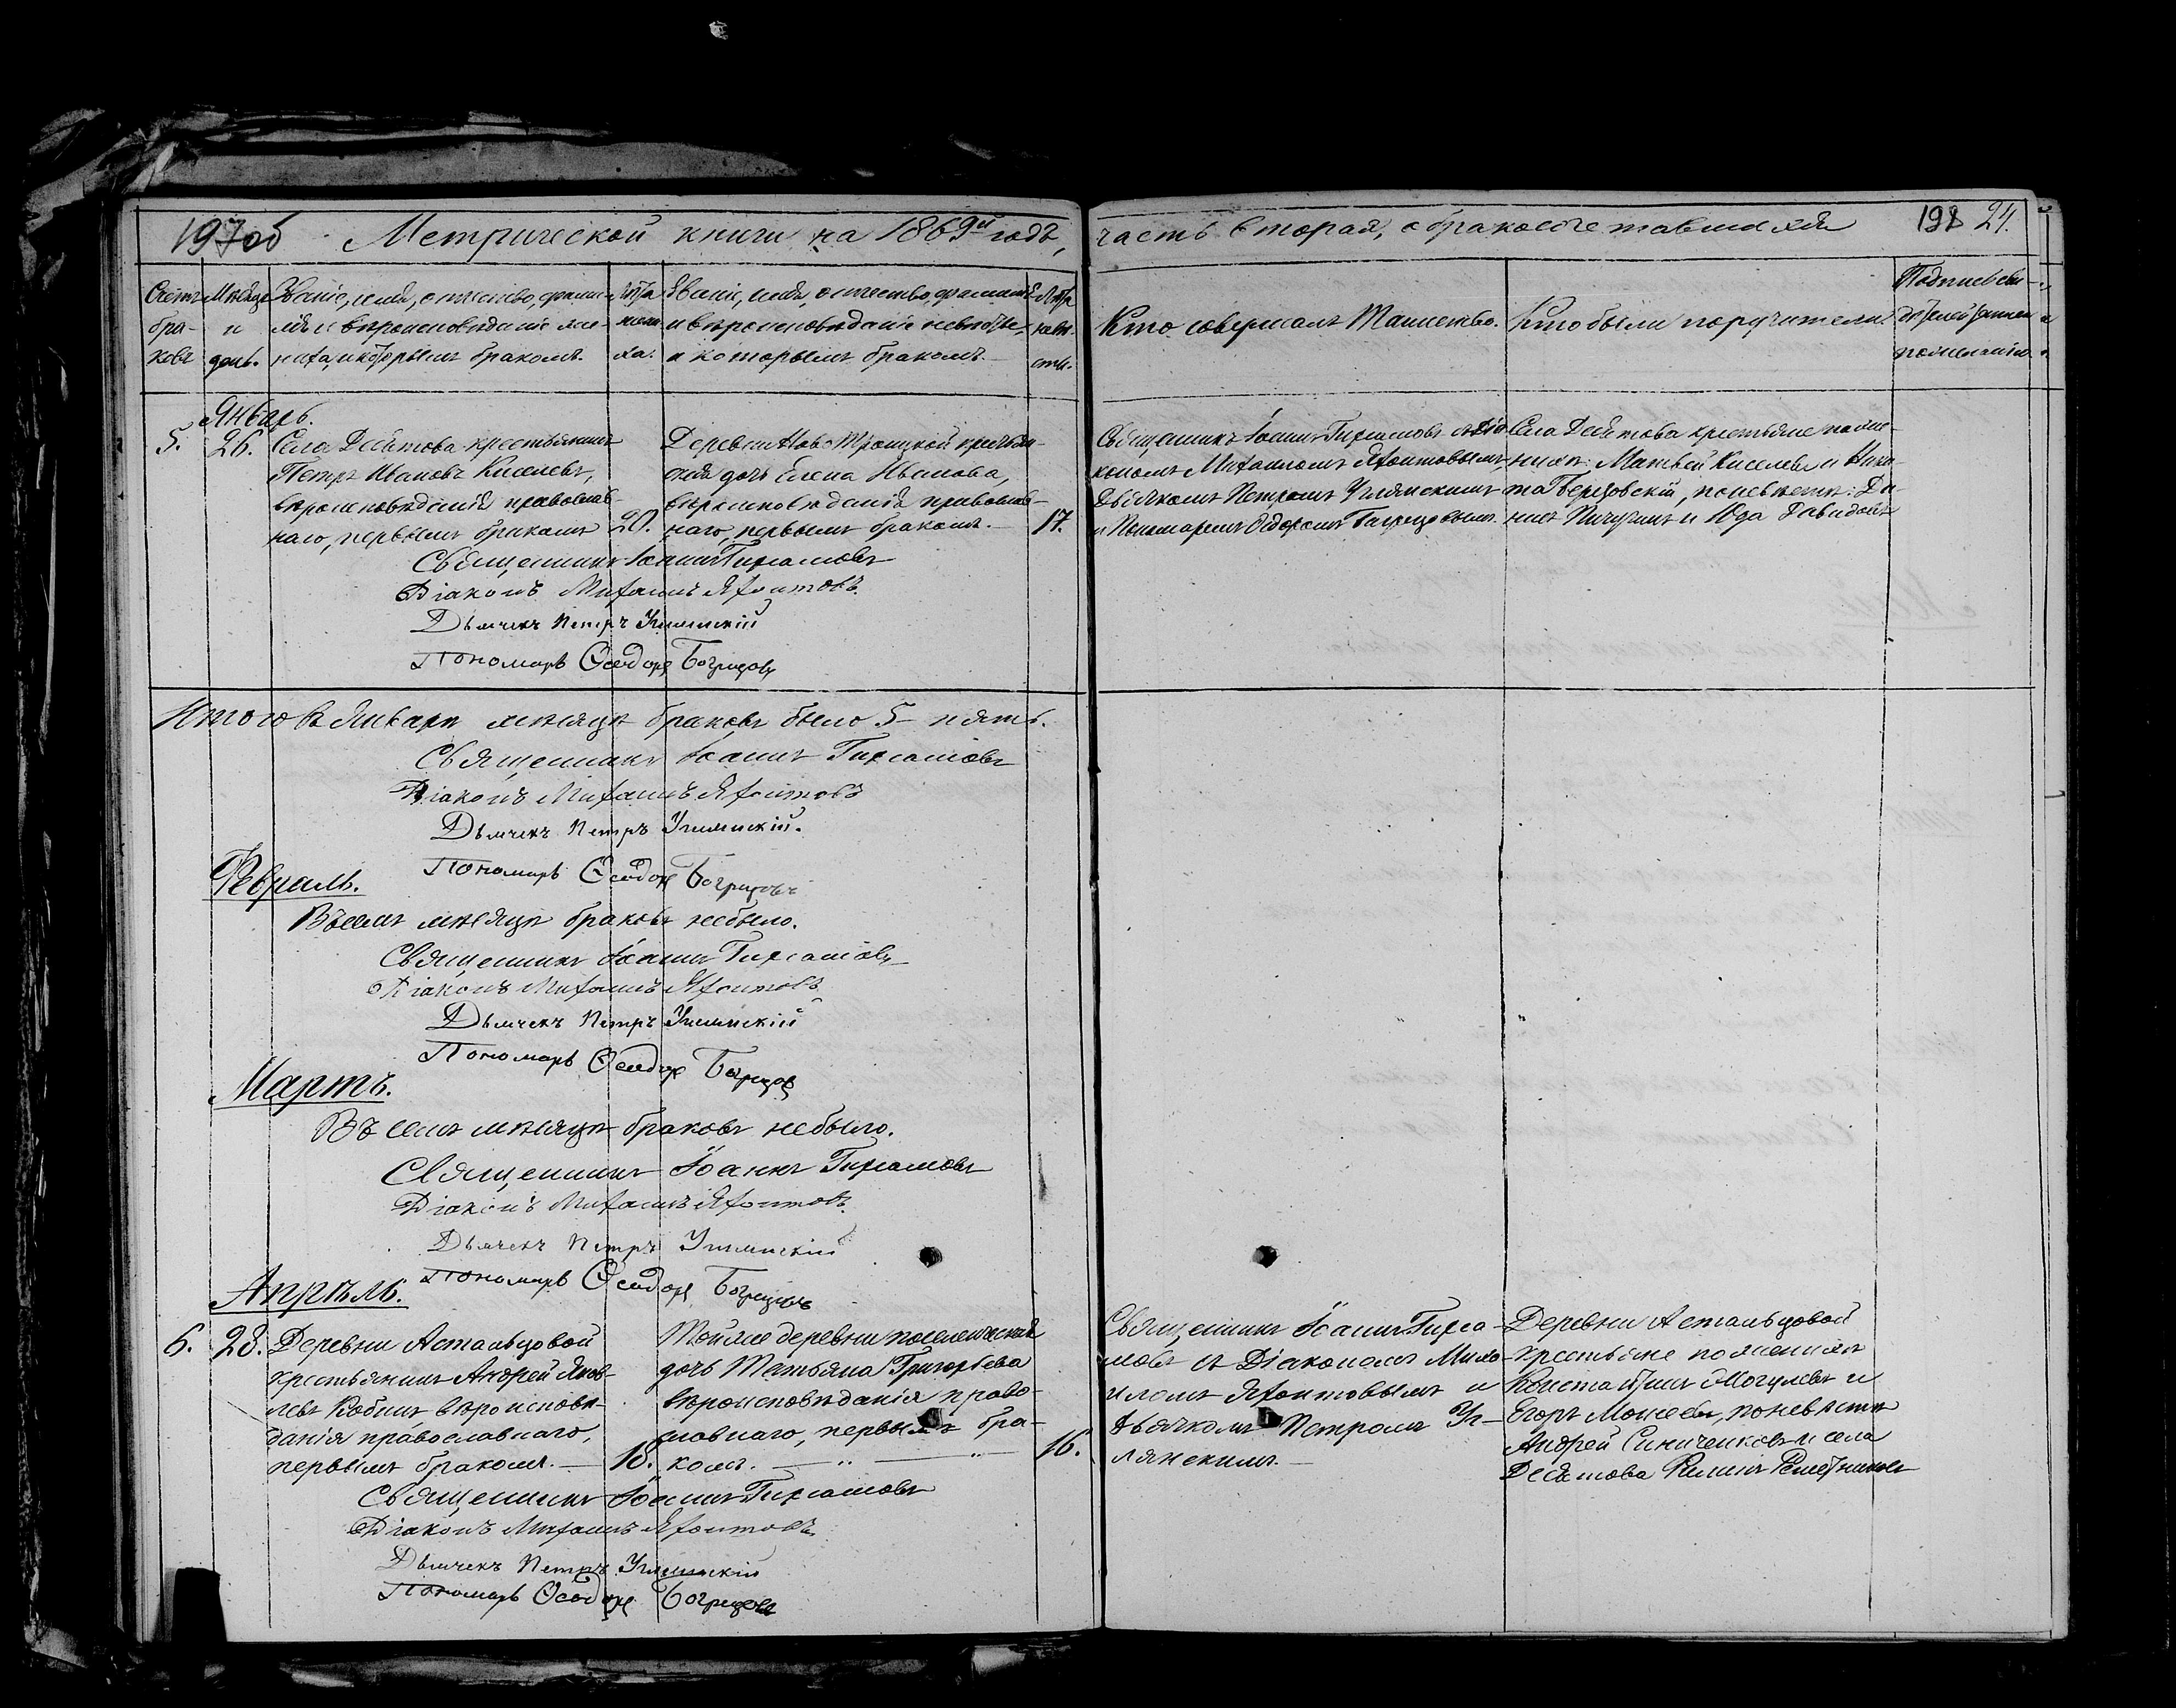 197об Метрической книги на 1869й годъ,
часть вторая, о бракосочетавшихся 198 24.
Счетъ браковъ
Мѣсяцъ и день.
Званіе, имя, отчество, фамилія и вѣроисповѣданіе жениха, и которымъ бракомъ.
Лѣта жениха.
Званіе, имя, отчество, фамилія и вѣроисповѣданіе невѣсты, и которымъ бракомъ.
Лѣта невѣсты.
Кто совершалъ Таинство.
Кто были поручители.
Январь.
5. 26. Села крестьянинъ
Петръ Ивановъ Киселевъ,
вѣроисповѣданія православ-
наго, первымъ бракомъ 20.
Деревни Ново Троицкой крестьян-
ская дочь Елена Иванова,
вѣроисповѣданія православ-
наго, первымъ бракомъ. 17.
Священникъ Іоаннъ съ Діа-
кономъ Михаиломъ Яхонтовымъ,
Дьячкомъ Петромъ Углянскимъ
и Пономаремъ Ѳедоромъ
Села крестьяне по же-
нихѣ: Матвей Киселевъ и Ники-
та, по невѣстѣ: Де-
нисъ Пичугинъ и Юда Давидовъ
Священникъ Іоаннъ
Діаконъ Михаилъ Яхонтовъ.
Дьячекъ Петръ Углянскій
Пономарь Ѳеодоръ
Итого въ Январѣ мѣсяцѣ браковъ было 5 пять.
Священникъ Іоаннъ
Діаконъ Михаилъ Яхонтовъ
Дьячекъ Петръ Углянскій.
Пономарь Ѳеодоръ
Февраль.
Въ семъ мѣсяцѣ браковъ не было.
Священникъ Іоаннъ
Діаконъ Михаилъ Яхонтовъ
Дьячекъ Петръ Углянскій
Пономарь Ѳеодоръ
Мартъ.
Въ семъ мѣсяцѣ браковъ не было.
Священникъ Іоаннъ
Діаконъ Михаилъ Яхонтовъ.
Дьячекъ Петръ Углянскій
Пономарь Ѳеодоръ
Апрѣль.
6. 28. Деревни Астальцовой
крестьянинъ Андрей Яков-
левъ Кобинъ, вѣроисповѣ-
данія православнаго,
первымъ бракомъ. 18.
Той же деревни
дочь Татьяна Григорьева
вѣроисповѣданія право-
славнаго, первымъ бра-
комъ. 16.
Священникъ Іоаннъ
съ Діакономъ Миха-
иломъ Яхонтовымъ и
дьячкомъ Петромъ Уг-
лянскимъ.
Деревни Астальцовой
крестьяне по женихѣ
Константинъ и
Егоръ Моисеевъ, по невѣстѣ
Андрей Синиченковъ и села
Священникъ Іоаннъ
Діаконъ Михаилъ Яхонтовъ
Дьячекъ Петръ Углянскій
Пономарь Ѳеодоръ